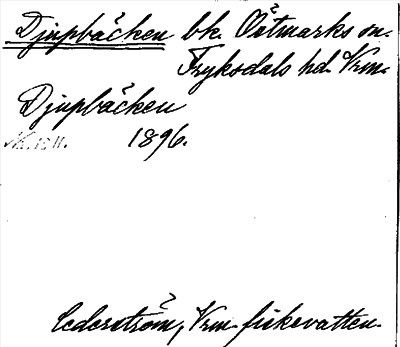 Djupbäcken bk. Östmarks sn.
Fryksdals hd. Vrm.
Djupbäcken
1896.
Cederström, Vrm. fiskevatten.